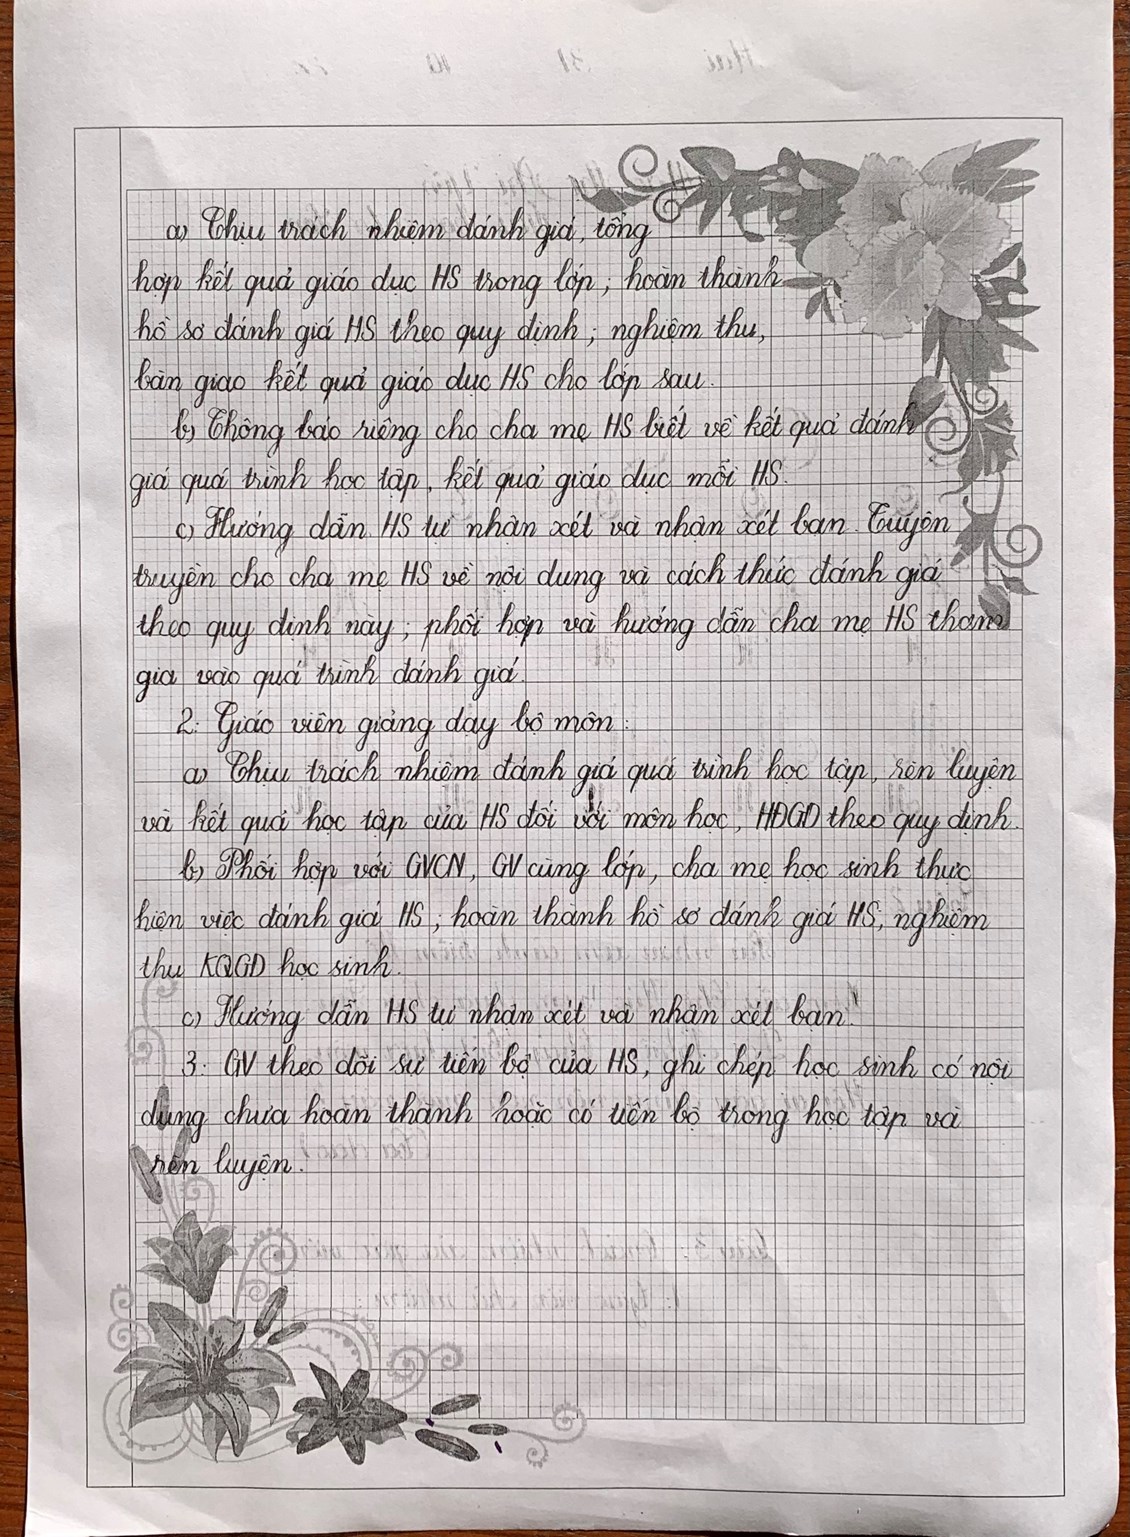 a) Chịu trách nhiệm đánh giá, tổng
hợp kết quả giáo dục HS trong lớp; hoàn thành
hồ sơ đánh giá HS theo quy định; nghiệm thu,
bàn giao kết quả giáo dục HS cho lớp sau.
b) Thông báo riêng cho cha mẹ HS biết về kết quả đánh
giá quá trình học tập, kết quả giáo dục mỗi HS.
c) Hướng dẫn HS tự nhận xét và nhận xét bạn. Tuyên
truyền cho cha mẹ HS về nội dung và cách thức đánh giá
theo quy định này; phối hợp và hướng dẫn cha mẹ HS tham
gia vào quá trình đánh giá.
2. Giáo viên giảng dạy bộ môn:
a) Chịu trách nhiệm đánh giá quá trình học tập, rèn luyện
và kết quả học tập của HS đối với môn học, HĐGD theo quy định.
b) Phối hợp với GVCN, GV cùng lớp, cha mẹ học sinh thực
hiện việc đánh giá HS; hoàn thành hồ sơ đánh giá HS, nghiệm
thu KQGD học sinh.
c) Hướng dẫn HS tự nhận xét và nhận xét bạn.
3. GV theo dõi sự tiến bộ của HS, ghi chép học sinh có nội
dung chưa hoàn thành hoặc có tiến bộ trong học tập và
rèn luyện.